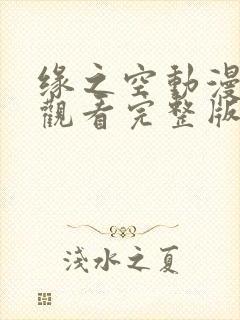 緣之空動漫
觀看完整版
淺水之夏